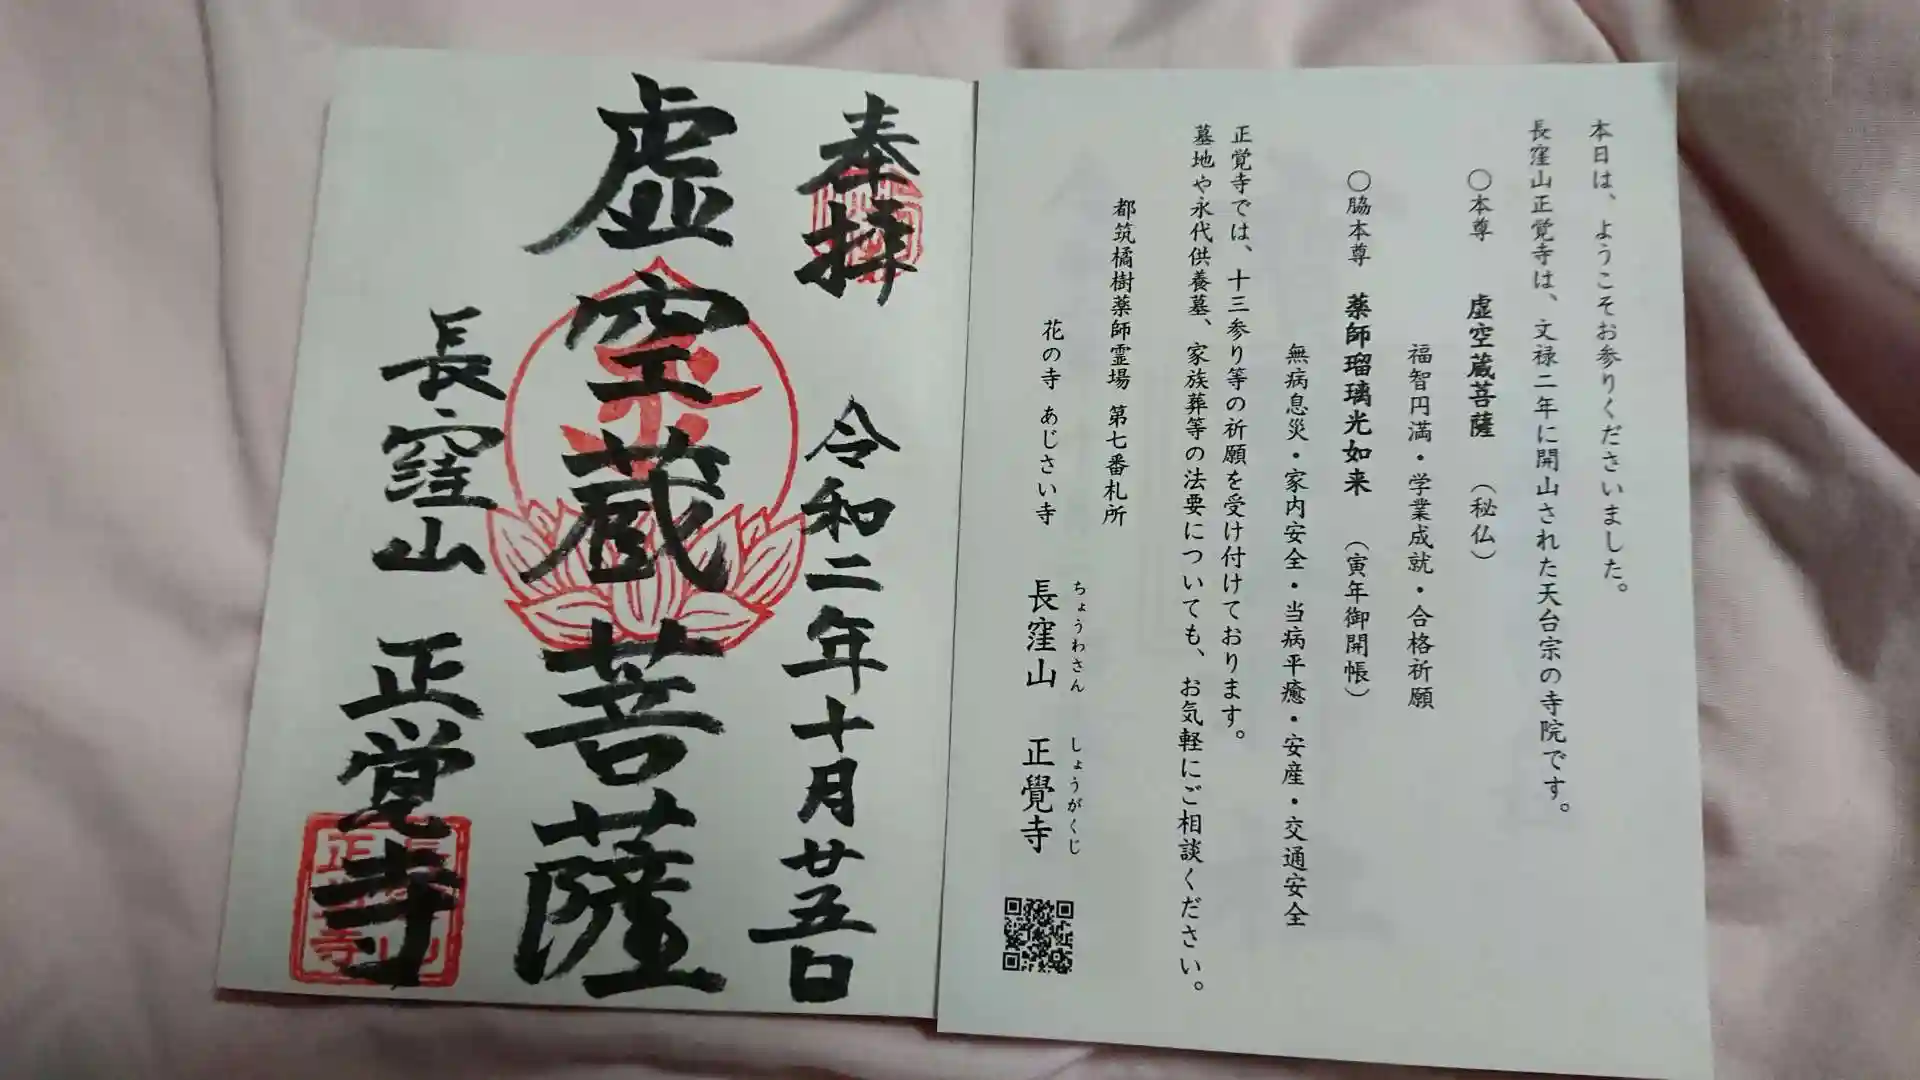 本日は、ようこそお参りくださいました。
長窪山正覚寺は、文禄二年に開山された天台宗の寺院です。
〇本尊 虚空蔵菩薩 （秘仏）
福智円満・学業成就・合格祈願
〇脇本尊 薬師瑠璃光如来 （寅年御開帳）
無病息災・家内安全・当病平癒・安産・交通安全
正覚寺では、十三参り等の祈願を受け付けております。
墓地や永代供養墓、家族葬等の法要についても、お気軽にご相談ください。
都筑橘樹薬師霊場 第七番札所
花の寺 あじさい寺
ちょうわさん しょうがくじ
長窪山 正覺寺
奉拝
令和二年十月廿五日
虚空蔵菩薩
長窪山 正覚寺